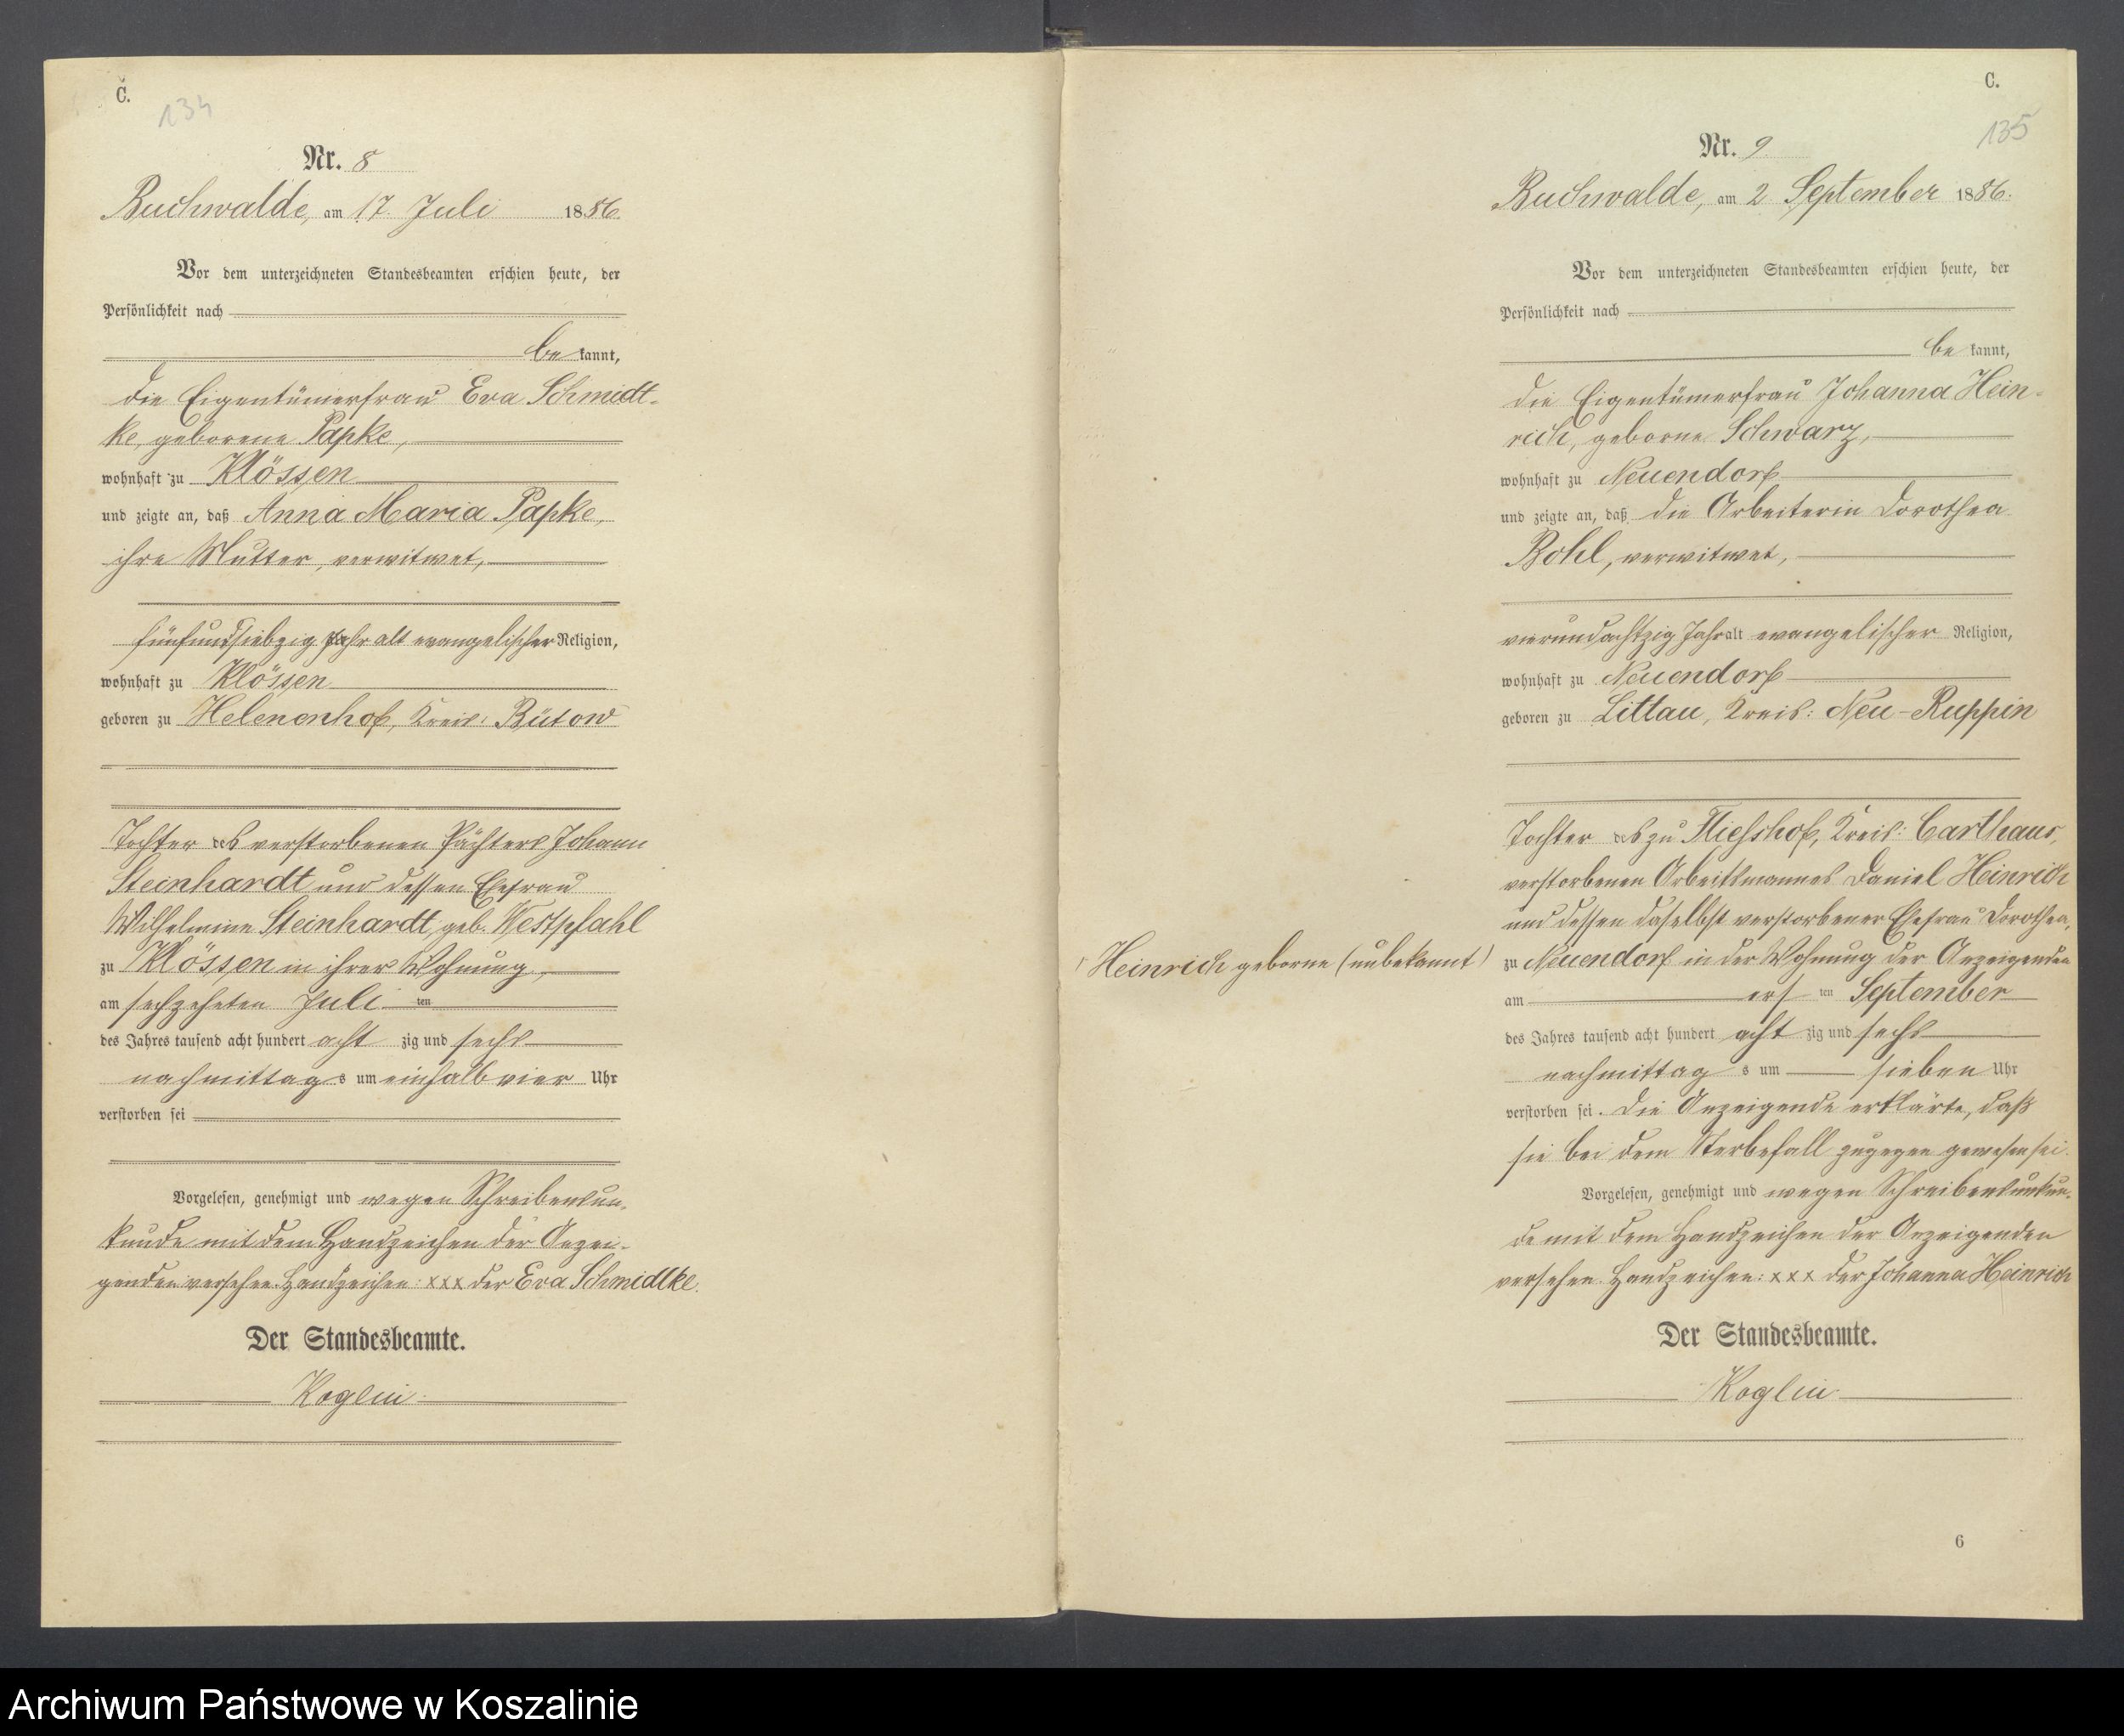 C.
134
Nr. 8
Buchwalde, am 17. Juli 1886.
Vor dem unterzeichneten Standesbeamten erschien heute, der
Persönlichkeit nach
be kannt,
die Eigentümerfrau Eva Schmidt-
ke, geborene Papke,
wohnhaft zu Klössen
und zeigte an, daß Anna Maria Papke,
ihre Mutter, verwitwet,
fünfundsiebzig Jahr alt evangelischer Religion,
wohnhaft zu Klössen
geboren zu Helenenhof, Kreis: Bütow
Tochter des verstorbenen Pächters Johann
Steinhardt und dessen Ehefrau
Wilhelmine Steinhardt, geb. Westpfahl
zu Klössen in ihrer Wohnung,
am sechzehnten Juli ten
des Jahres tausend acht hundert acht zig und sechs
nachmittag s um einhalb vier Uhr
verstorben sei
Vorgelesen, genehmigt und wegen Schreibensun-
kunde mit dem Handzeichen der Anzei-
genden versehen. Handzeichen: xxx der Eva Schmidtke.
Der Standesbeamte.
Koglin
C.
135
Nr. 9
Buchwalde, am 2. September 1886.
Vor dem unterzeichneten Standesbeamten erschien heute, der
Persönlichkeit nach
be kannt,
die Eigentümerfrau Johanna Hein-
rich, geborne Schwarz,
wohnhaft zu Neuendorf
und zeigte an, daß die Arbeiterin Dorothea
Bohl, verwitwet,
vierundachtzig Jahr alt evangelischer Religion,
wohnhaft zu Neuendorf
geboren zu Littau, Kreis: Neu-Ruppin
Tochter des zu Fliesshof, Kreis: Carthaus,
verstorbenen Arbeitsmannes Daniel Heinrich
und dessen daselbst verstorbener Ehefrau Dorothea,
Heinrich geborne (unbekannt)
zu Neuendorf in der Wohnung der Anzeigenden
am ers ten September
des Jahres tausend acht hundert acht zig und sechs
nachmittag s um sieben Uhr
verstorben sei. Die Anzeigende erklärte, daß
sie bei dem Sterbefall zugegen gewesen sei.
Vorgelesen, genehmigt und wegen Schreibensunkun-
de mit dem Handzeichen der Anzeigenden
versehen. Handzeichen: xxx der Johanna Heinrich
Der Standesbeamte.
Koglin
6
Archiwum Państwowe w Koszalinie